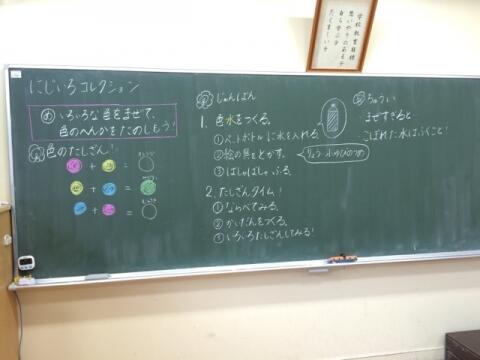 学校教育目標
思いやりのある子
自ら学ぶ子
たくましい子
にじいろコレクション
め いろいろな色をまぜて、
色のへんかをたのしもう!
色のたしざん!
+ =
+ =
+ =
じゅんばん
1. 色水をつくる。
①ペットボトルに水を入れる。
②絵の具をとかす。
りょう 小ゆびのつめ
③しゃばしゃばふる。
2. たしざんタイム!
①ならべてみる。
②かいだんをつくる。
③いろいろたしざんしてみる!
ちゅうい
まぜすぎると
こぼれた水はふくこと!